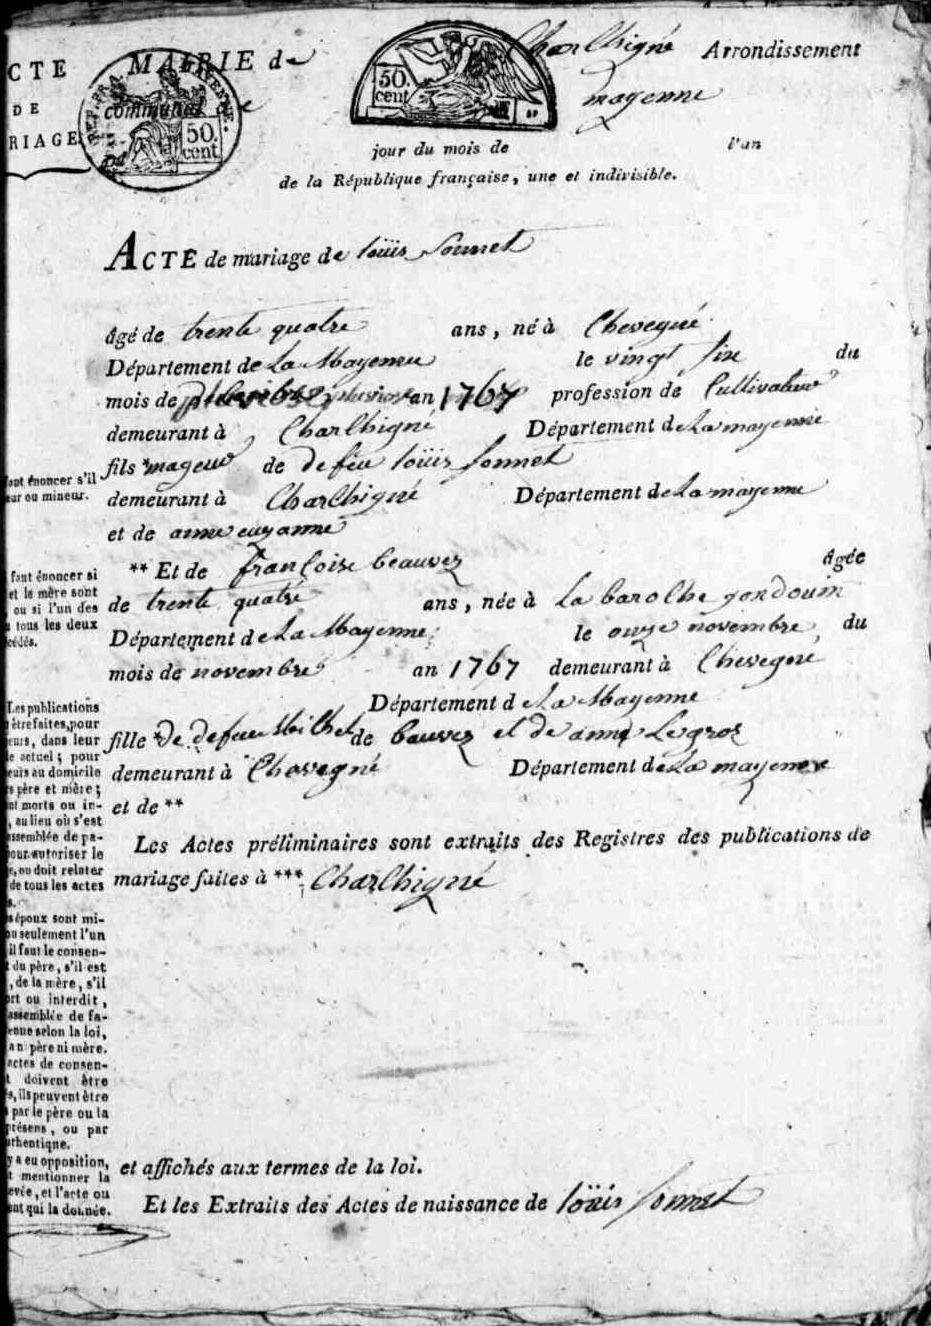 CTE MAIRIE de Charchigné Arrondissement
DE communal mayenne
RIAGE
50.
cent
50.
cent
jour du mois de l'an
de la République française, une et indivisible.
ACTE de mariage de loüis Sonnet
âgé de trente quatre ans, né à Chevegné
Département de La Mayenne le vingt six du
mois de an 1767 profession de Cultivateur
demeurant à Charchigné Département de La mayenne
fils mageur de defeu loüis Sonnet
demeurant à Charchigné Département de La mayenne
et de anne
** Et de françoise beauvez âgée
de trente quatre ans, née à La baroche gondouin
Département de La Mayenne le onze novembre du
mois de novembre an 1767 demeurant à Chevegné
Département d La Mayenne
fille de defeu Michel de bauvez et de anne Legros
demeurant à Chevegné Département de La mayenne
et de **
Les Actes préliminaires sont extraits des Registres des publications de
mariage faites à *** Charchigné
et affichés aux termes de la loi.
Et les Extraits des Actes de naissance de loüis Sonnet
aut énoncer s'il
eur ou mineur.
faut énoncer si
et la mère sont
ou si l'un des
tous les deux
cédés.
Les publications
être faites, pour
eurs, dans leur
le actuel; pour
eurs au domicile
s père et mère;
nt morts ou in-
, au lieu où s'est
assemblée de pa-
pour autoriser le
e, on doit relater
de tous les actes
s.
s époux sont mi-
ou seulement l'un
il faut le consen-
t du père, s'il est
, de la mère, s'il
ort ou interdit,
assemblée de fa-
enue selon la loi,
a ni père ni mère.
actes de consen-
t doivent être
s, ils peuvent être
par le père ou la
présens, ou par
uthentique.
y a eu opposition,
t mentionner la
evée, et l'acte ou
ent qui la donnée.